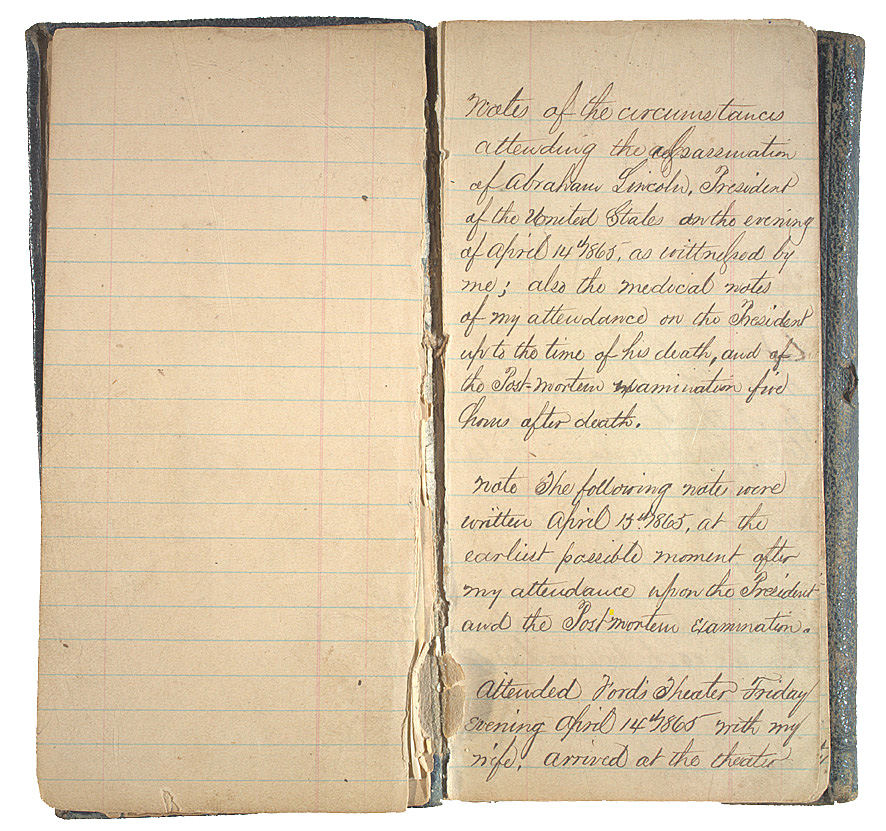 Notes of the circumstances
attending the assassination
of Abraham Lincoln, President
of the United States on the evening
of April 14th 1865, as wittnessed by
me; also the medical notes
of my attendance on the President
up to the time of his death, and of
the Post-mortem examination five
hours after death.
Note The following notes were
written April 15th 1865, at the
earliest possible moment after
my attendance upon the President
and the Post mortem examination.
Attended Fords Theater Friday
evening April 14th 1865 with my
wife. Arrived at the theater